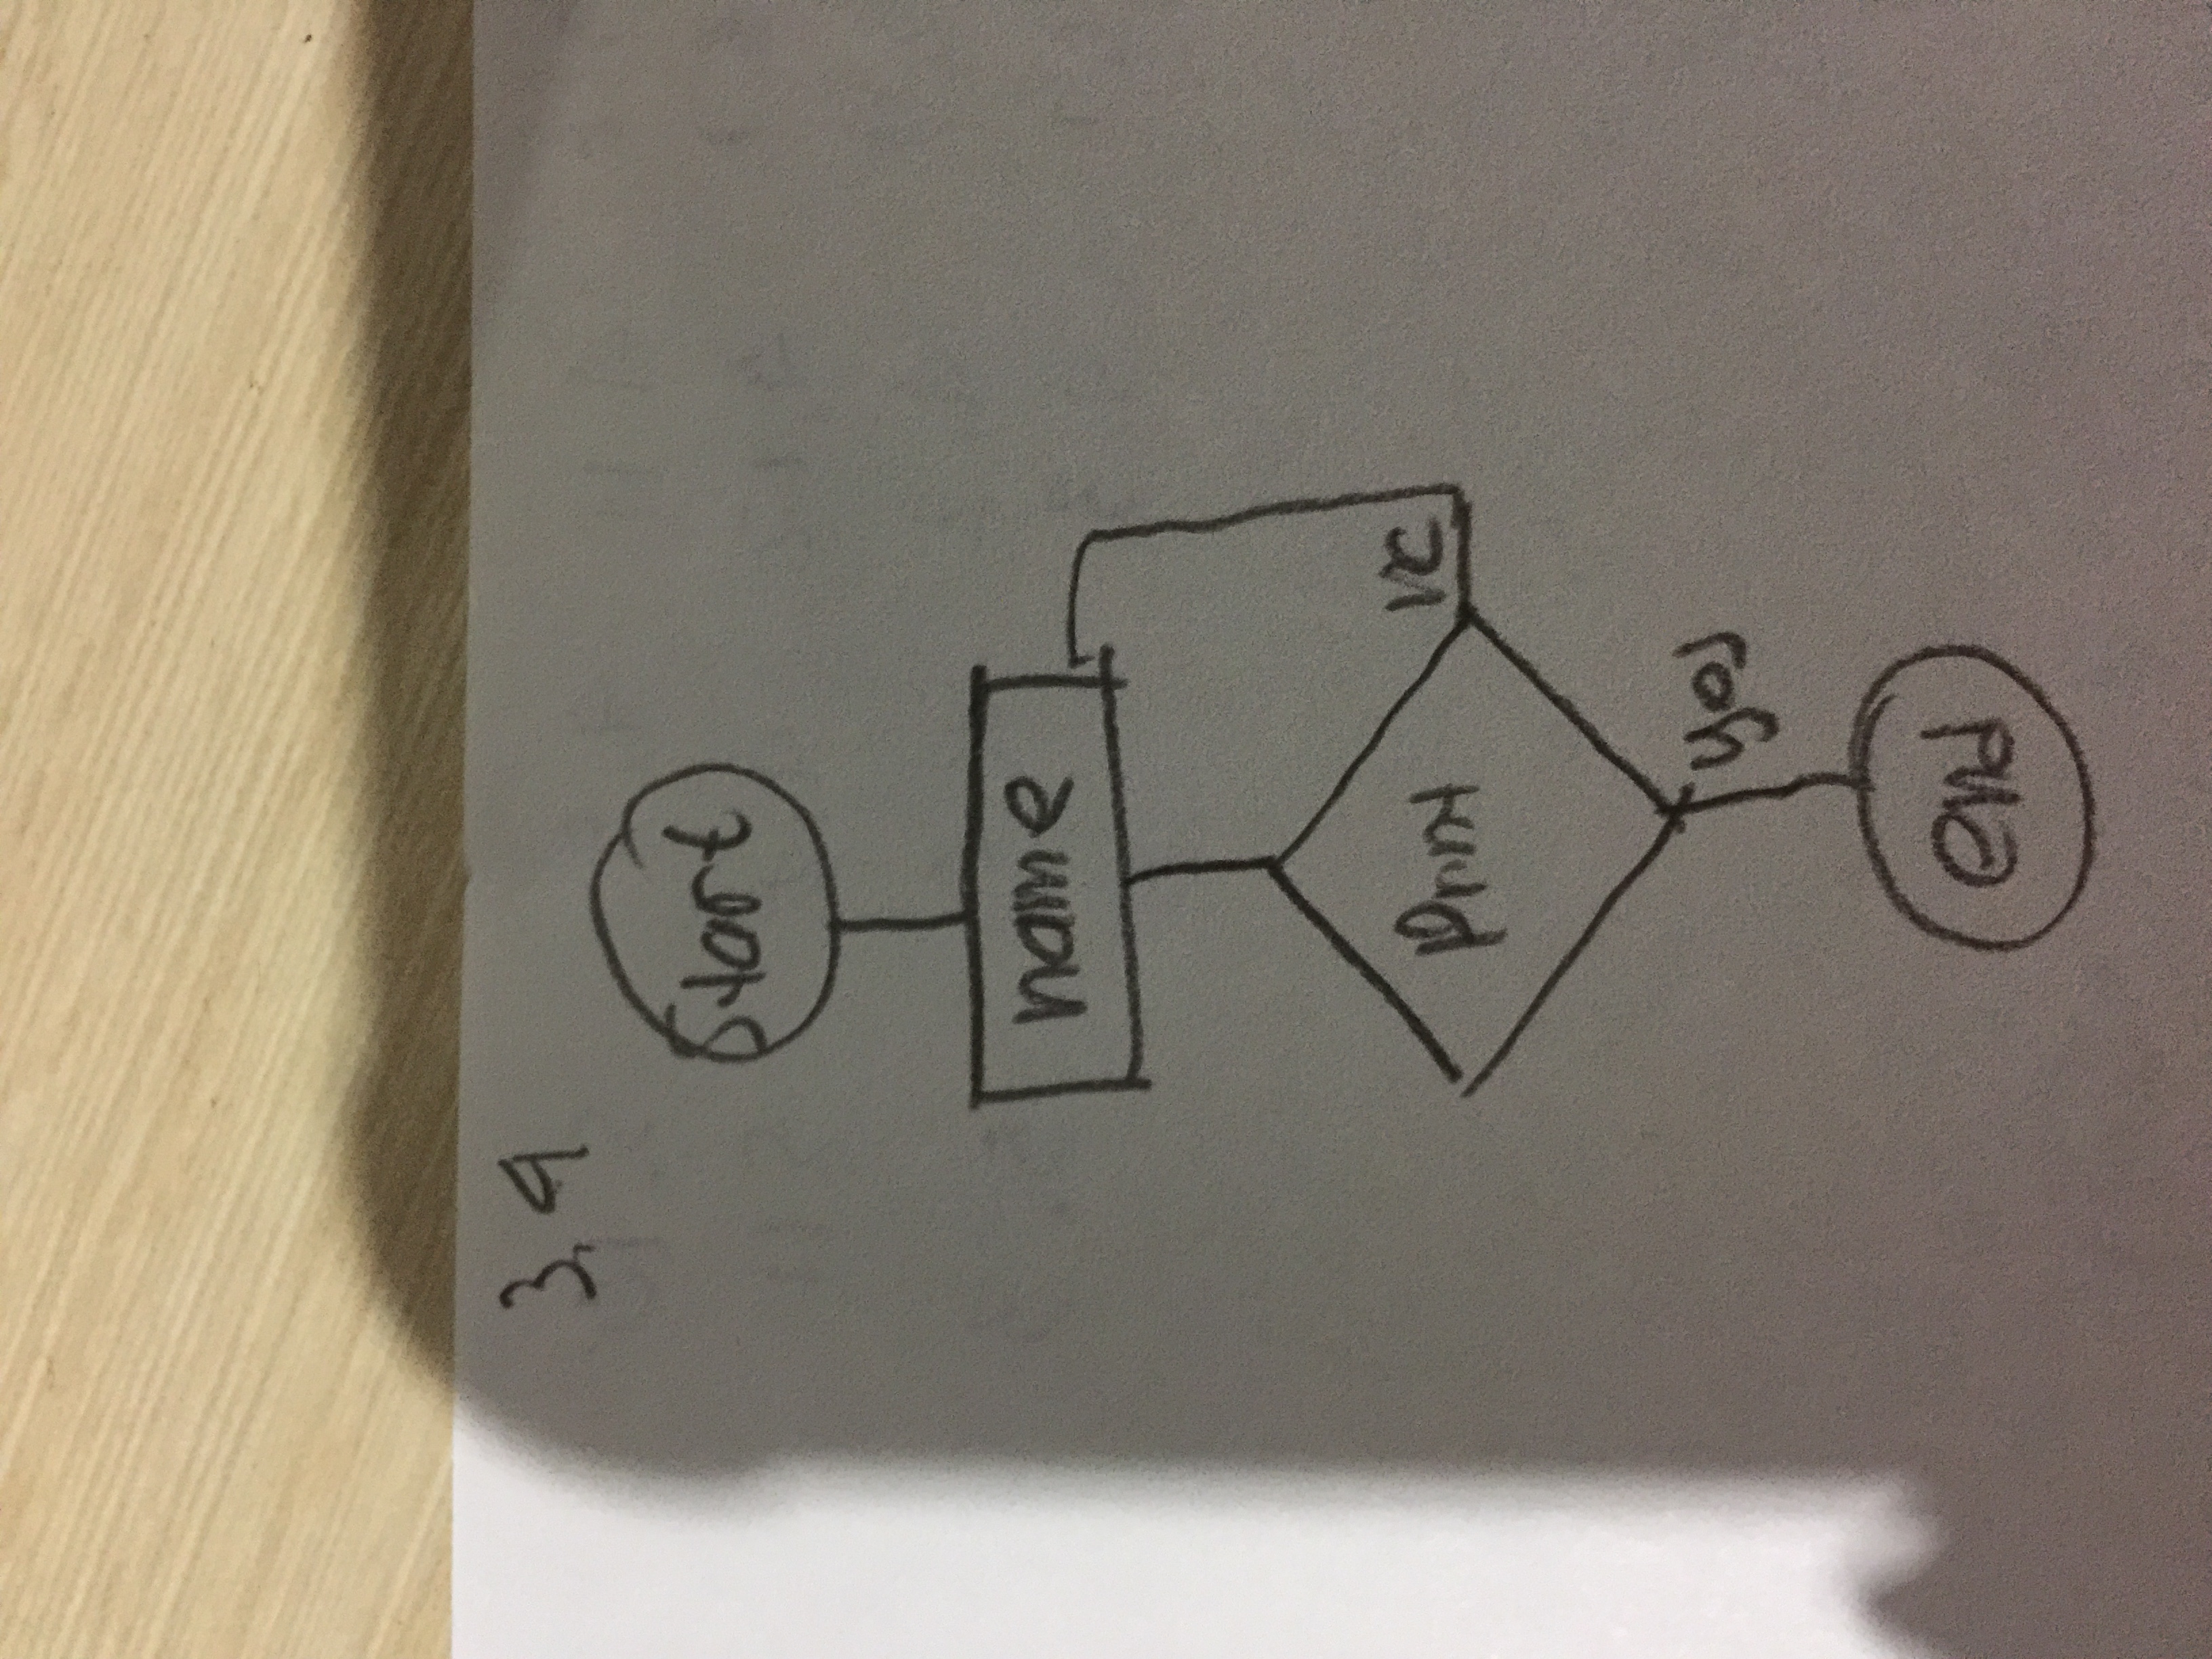 3, 4
Start
name
Print
yes
end